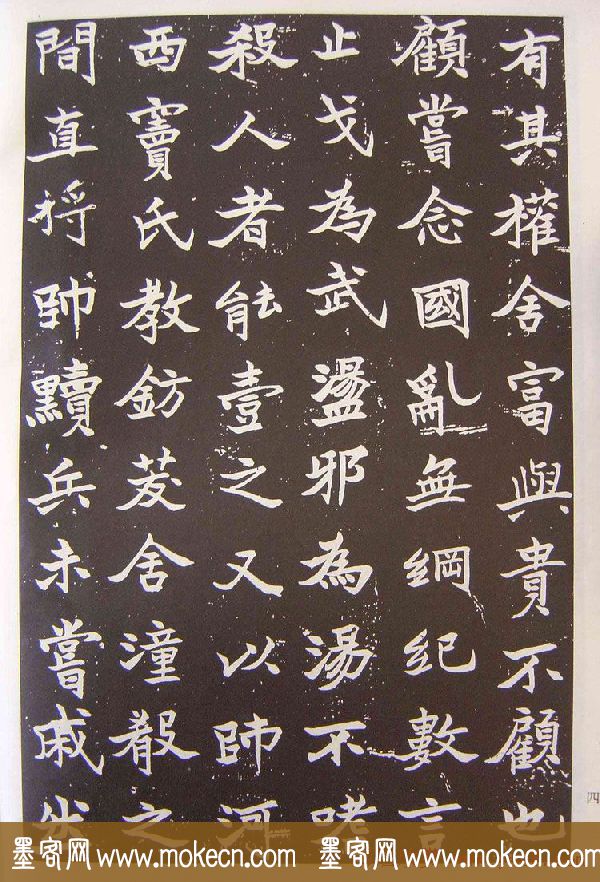 有其權舍富與貴不顧也
顧嘗念國亂無綱紀數言
止戈為武盪邪為湯不嗜
殺人者能壹之又以師河
西竇氏教鈁茇舍潼殽之
間直捋帥黷兵未嘗戚然
四
墨客网 www.mokecn.com 墨客网 www.mokecn.com